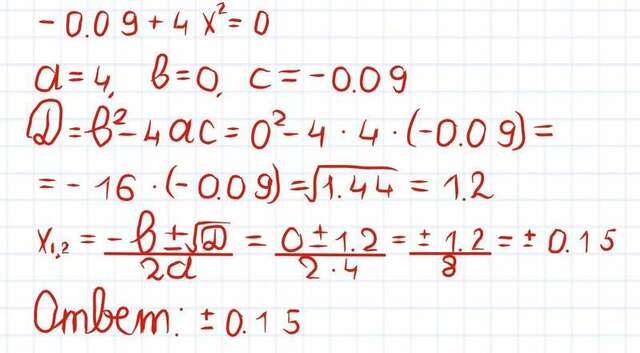 -0.09+4x²=0
a=4, b=0, c=-0.09
D=b²-4ac=0²-4·4·(-0.09)=
=-16·(-0.09)=√1.44=1.2
x₁,₂=(-b±√D)/(2a)=(0±1.2)/(2·4)=(±1.2)/8=±0.15
Ответ: ±0.15